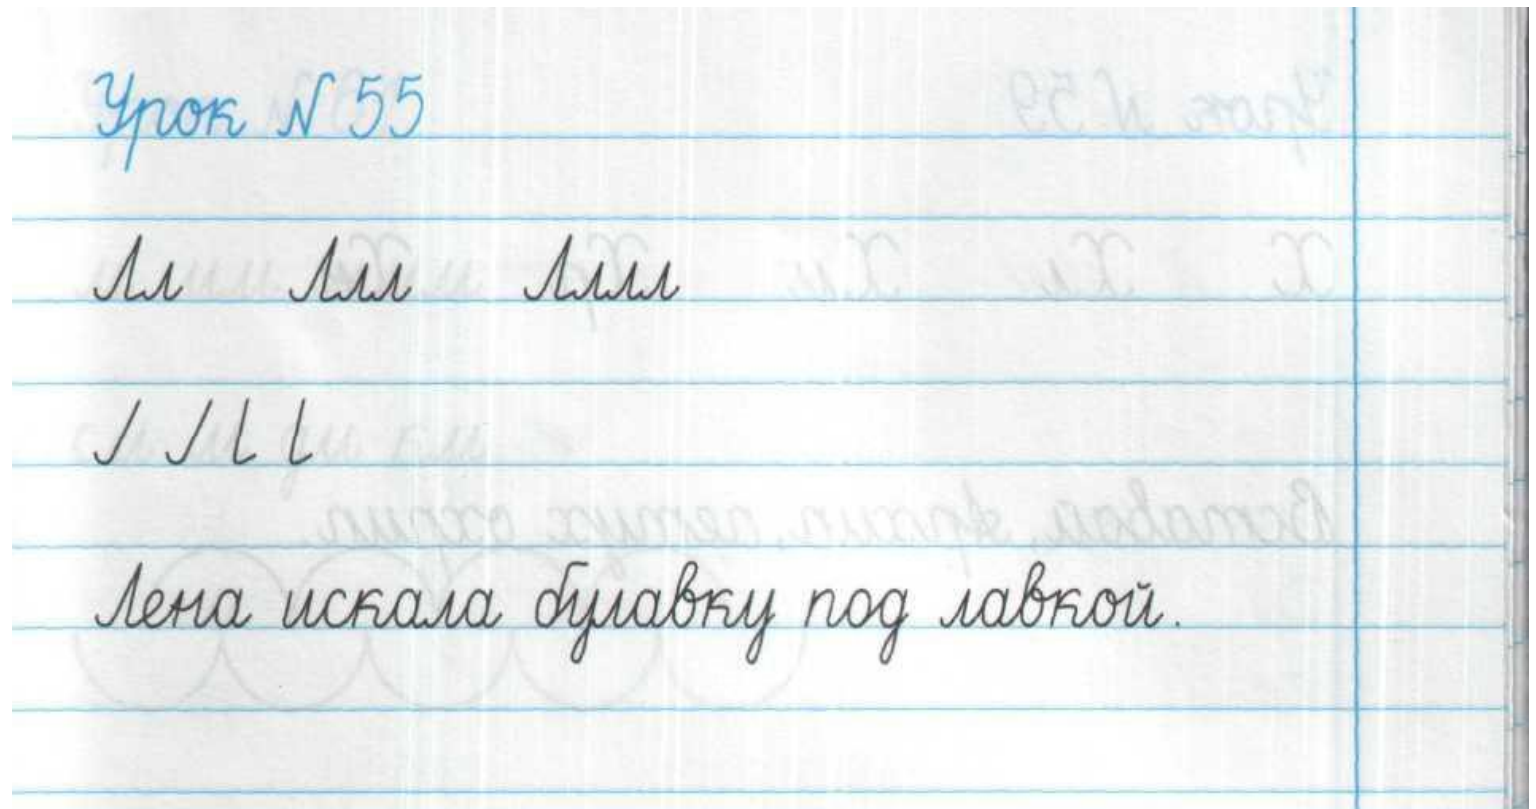 Урок N 55
Лл Алл Аллл
Лена искала булавку под лавкой.